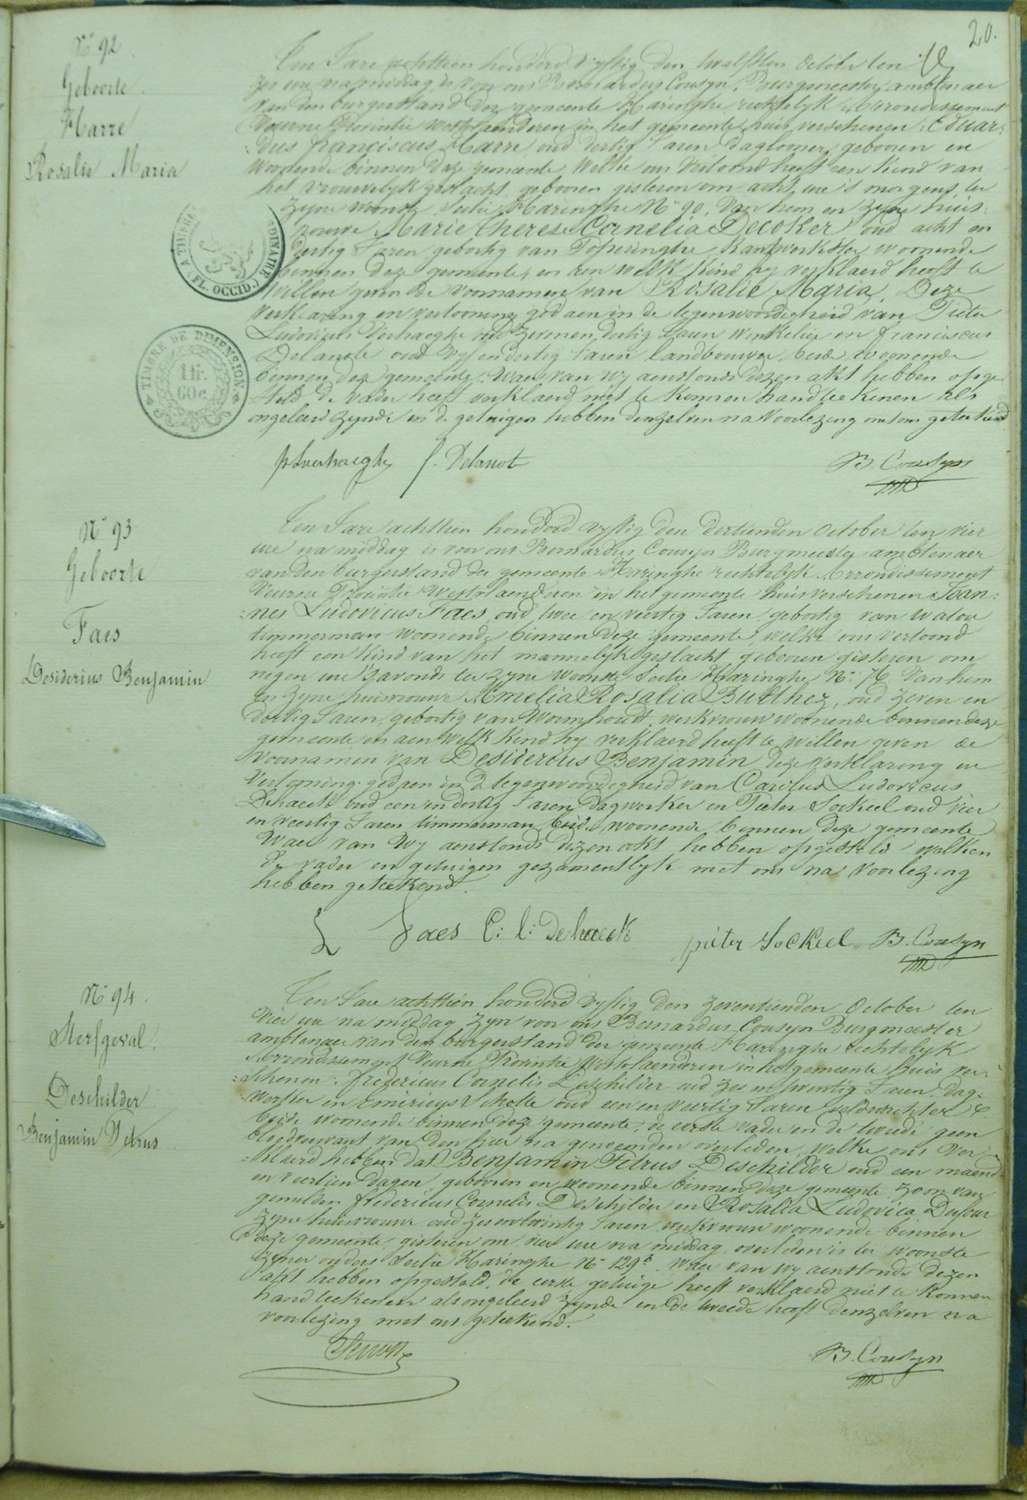 20.
N° 92
Geboorte
Harre
Rosalie Maria
Ten Jare achttien honderd vyftig den twaelfsten October ten
zes ure namiddag is voor ons Bernardus Cousyn, Burgemeester, ambtenaer
van den burgerstand der gemeente Haringhe rechtelyk Arrondissement
Veurne Provintie Westvlaenderen in het gemeente huis verschenen Eduar-
dus Franciscus Harre oud dertig Jaren dagloopen geboren en
woonende binnen deze gemeente welke ons vertoond heeft een kind van
het vrouwelyk geslacht geboren gisteren om acht ure 's morgens ter
zyne woonste Sectie Haringhe N° 90, van hem en zyne huis-
vrouwe Marie Therese Cornelia Decoker oud acht en
dertig Jaren geboortig van kantwerkster woonende
binnen deze gemeente, en aen welk kind hy verklaerd heeft te
willen geven de voornamen van Rosalie Maria, Deze
verklaring en vertooning gedaen in de tegenwoordigheid van Pieter
Ludovicus Verhaeghe oud zevenendertig Jaren winkelier en Franciscus
Delanote oud vyf en dertig Jaren landbouwer beide woonende
binnen deze gemeente. Waer van wy aenstonds dezen akt hebben opge-
steld, de vader heeft verklaerd niet te konnen handteekenen als
ongeleerd zynde en de getuigen hebben denzelven na voorlezing met ons geteekend
TIMBRE DE DIMENSION
1 fr.
60 c.
FL. OCCID.
P L verhaeghe f. Delanot B. Cousyn
N° 93
Geboorte
Faes
Desiderius Benjamin
Ten Jare achttien honderd vyftig den dertienden October ten vier
ure na middag is voor ons Bernardus Cousyn Burgmeester ambtenaer
van den burgerstand der gemeente Haringhe rechtelyk Arrondissement
Veurne Provintie Westvlaenderen in het gemeente huis verschenen Joan-
nes Ludovicus Faes oud twee en veertig Jaren geboortig van Watou
timmerman woonende binnen deze gemeente, welke ons vertoond
heeft een kind van het mannelyk geslacht geboren gisteren om
negen ure 's avonds ter zyne woonste Sectie Haringhe N° 76 van hem
en zyne huisvrouw Amelia Rosalia Butthez, oud zeven en
dertig Jaren, geboortig van Wormhoudt, werkvrouw woonende binnen deze
gemeente en aen welk kind hy verklaerd heeft te willen geven de
voornamen van Desiderius Benjamin deze verklaring en
vertooning gedaen in de tegenwoordigheid van Carolus Ludovicus
Dehaeck oud een en dertig Jaren dagwerker en Pieter Sockeel oud vier
en veertig Jaren timmerman beide woonende binnen deze gemeente
Waer van wy aenstonds dezen akt hebben opgesteld welken
de vader en getuigen gezamentlyk met ons na voorlezing
hebben geteekend.
L Faes C: l: Dehaeck pieter Sockeel B. Cousyn
N° 94
Sterfgeval
Deschilder
Benjamin Petrus
Ten Jare achttien honderd vyftig den zeventienden October ten
vier ure na middag zyn voor ons Bernardus Cousyn Burgmeester
ambtenaer van den burgerstand der gemeente Haringhe rechtelyk
Arrondissement Veurne Provintie Westvlaenderen in het gemeente huis ver-
schenen: Fredericus Cornelis Deschilder oud zes en twintig Jaren dag-
werker en Emiricus Scholle oud een en veertig Jaren veldwachter
beide woonende binnen deze gemeente, de eerste vader en de tweede geen
bloedverwant van den hier na genoemden overleden, welke ons ver-
klaerd hebben dat Benjamin Petrus Deschilder oud een maend
en veertien dagen, geboren en woonende binnen deze gemeente, zoon van
gemelden Fredericus Cornelis Deschilder en Rosalia Ludovica Dufour
zyne huisvrouw oud zes en twintig Jaren werkvrouw woonende binnen
deze gemeente gisteren om vier ure na middag overleden is ter woonste
zyner ouders Sectie Haringhe N° 129. Waer van wy aenstonds dezen
akt hebben opgesteld, de eerste getuige heeft verklaerd niet te konnen
handteekenen als ongeleerd zynde en de tweede heeft denzelven na
voorlezing met ons geteekend.
B. Cousyn